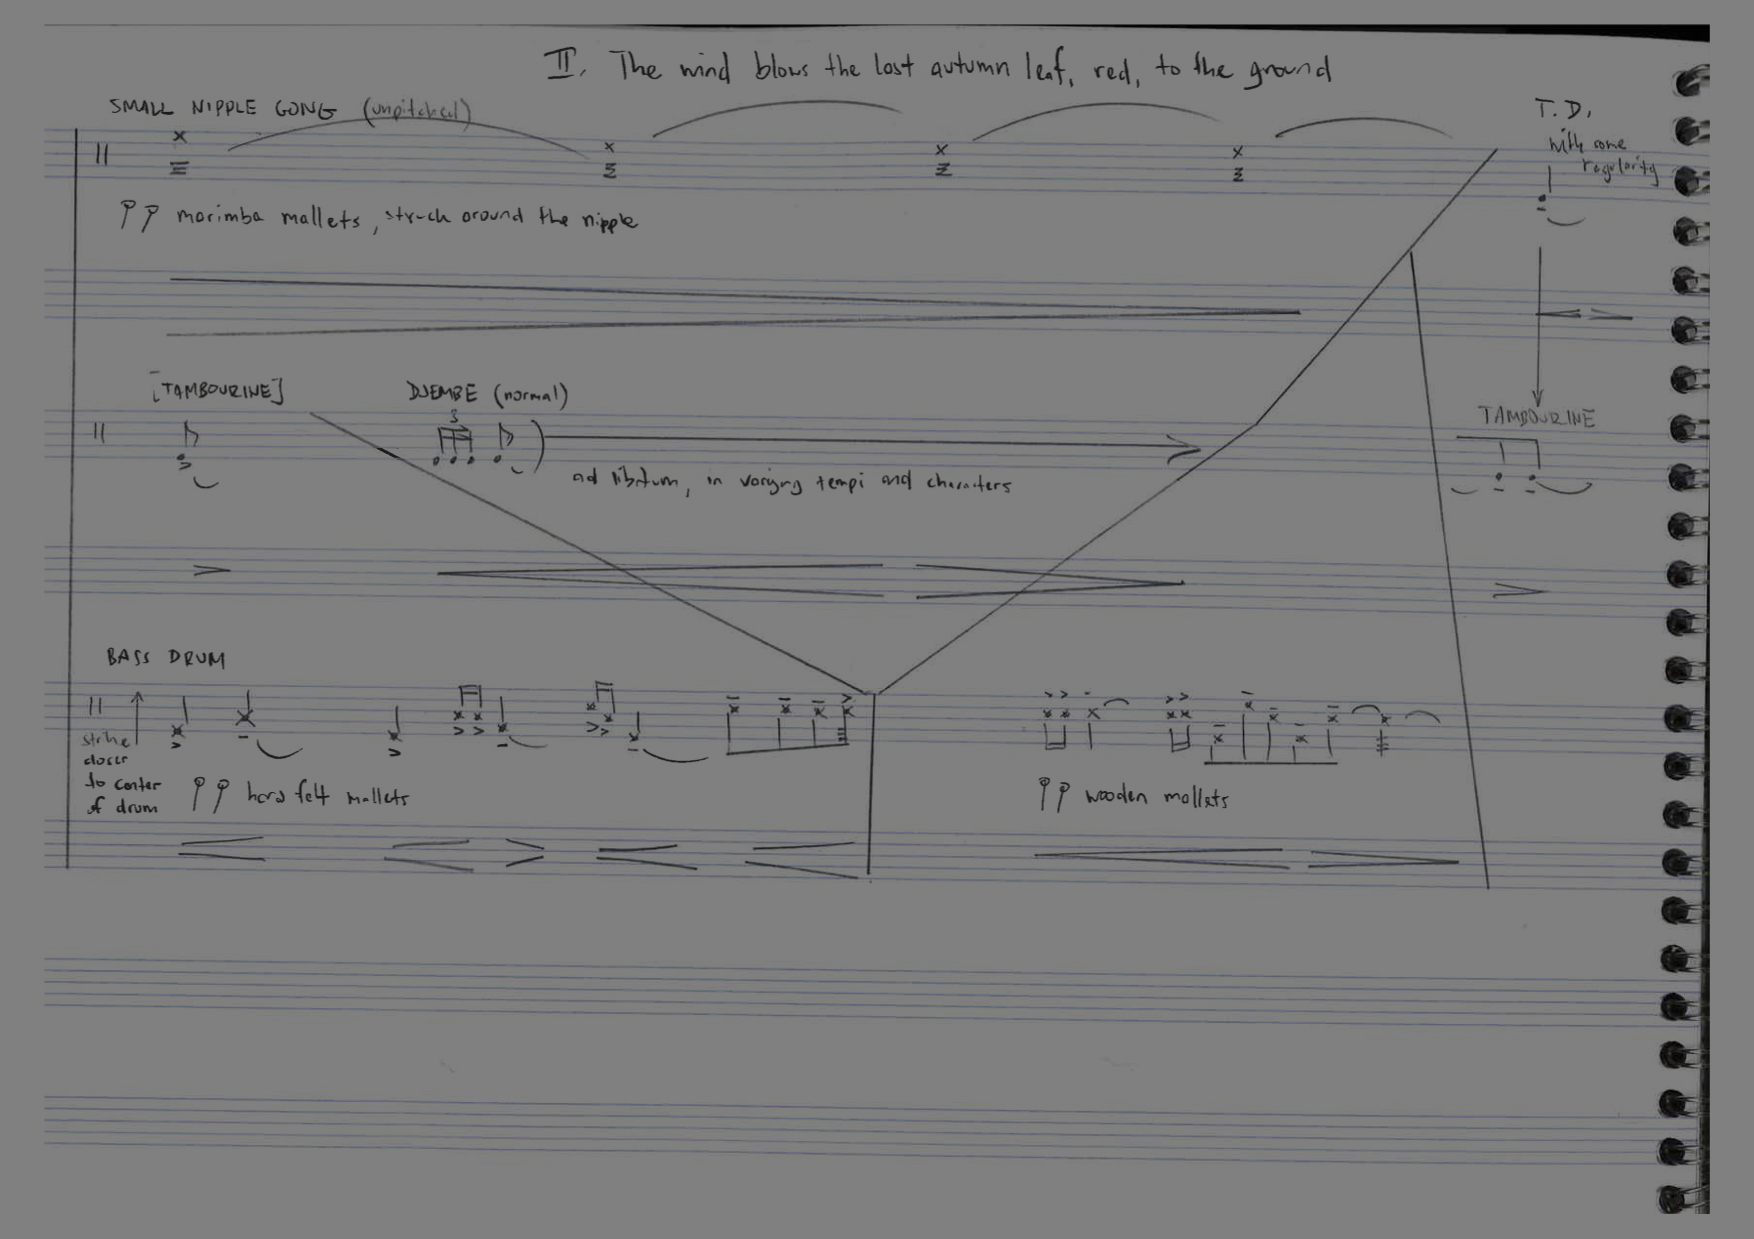 II. The wind blows the last autumn leaf, red, to the ground
SMALL NIPPLE GONG (unpitched)
T.D.
with some
regularity
marimba mallets, struck around the nipple
[TAMBOURINE]
DJEMBE (normal)
3
TAMBOURINE
ad libitum, in varying tempi and characters
BASS DRUM
strike
closer
to center
of drum
hard felt mallets
wooden mallets